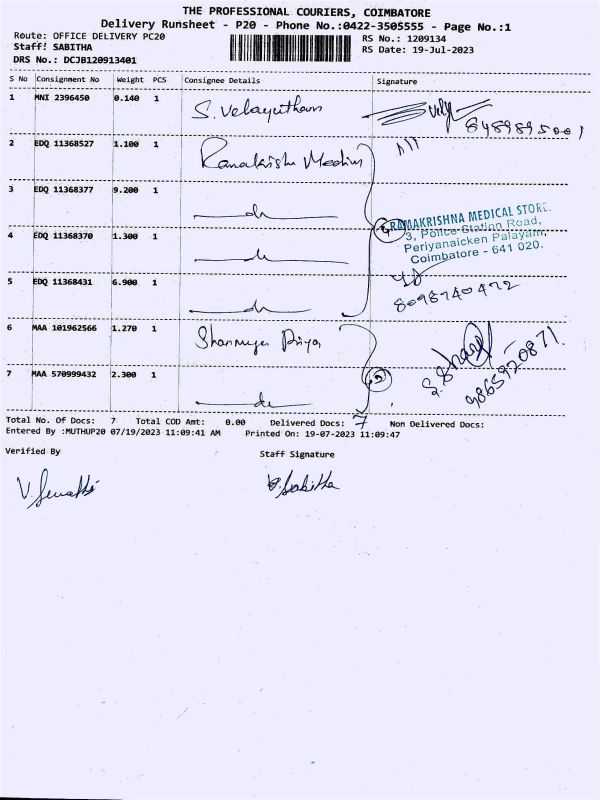 THE PROFESSIONAL COURIERS, COIMBATORE
Delivery Runsheet - P20 - Phone No.:0422-3505555 - Page No.:1
Route: OFFICE DELIVERY PC20
RS No.: 1209134
Staff: SABITHA
RS Date: 19-Jul-2023
DRS No.: DCJB120913401
S No Consignment No Weight PCS Consignee Details Signature
1 MNI 2396450 0.140 1 S. Velayutham
8489895001
2 EDQ 11368527 1.100 1
3 EDQ 11368377 9.200 1
4 EDQ 11368370 1.300 1
5 EDQ 11368431 6.900 1
RAMAKRISHNA MEDICAL STORE.
3, Police Station Road,
Periyanaicken Palayam,
Coimbatore - 641 020.
8098740472
6 MAA 101962566 1.270 1 Shanmuga Priya
9865920871.
7 MAA 570999432 2.300 1
Total No. Of Docs: 7 Total COD Amt: 0.00 Delivered Docs: 7 Non Delivered Docs:
Entered By :MUTHUP20 07/19/2023 11:09:41 AM Printed On: 19-07-2023 11:09:47
Verified By Staff Signature